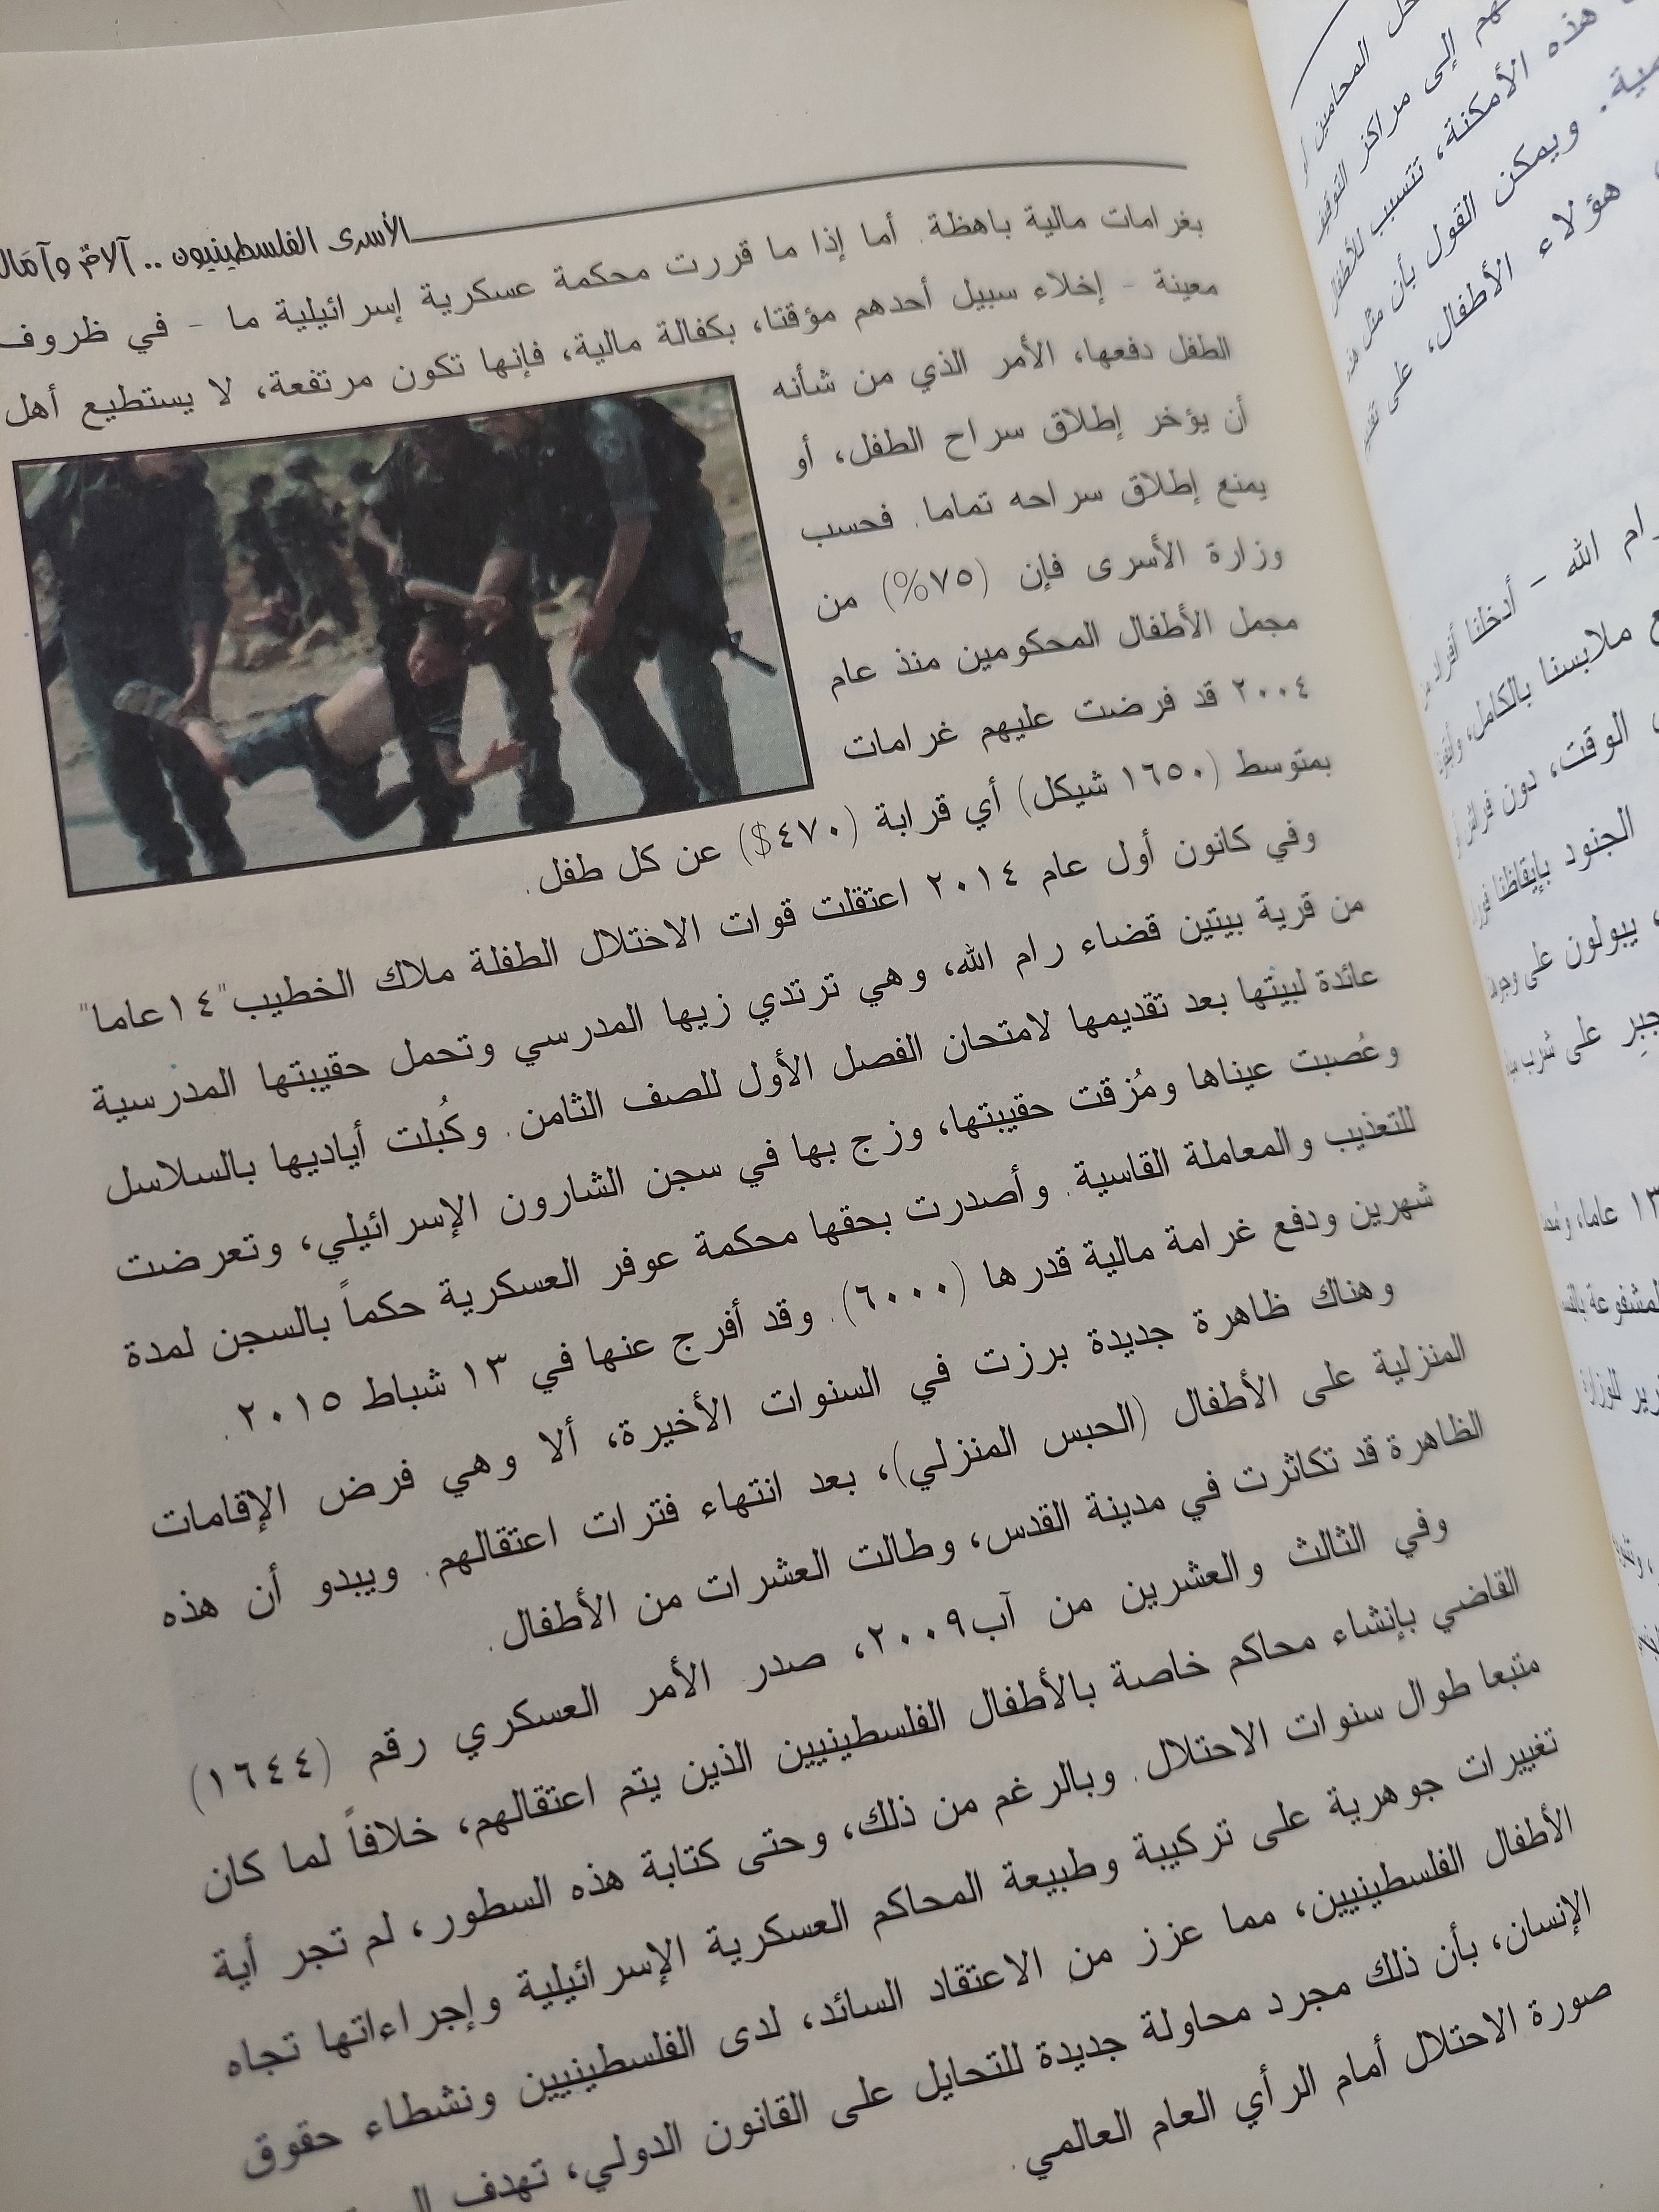 الأسرى الفلسطينيون .. آلام وآمال
بغرامات مالية باهظة. أما إذا ما قررت محكمة عسكرية إسرائيلية ما - في ظروف
معينة - إخلاء سبيل أحدهم مؤقتا، بكفالة مالية، فإنها تكون مرتفعة، لا يستطيع أهل
الطفل دفعها، الأمر الذي من شأنه
أن يؤخر إطلاق سراح الطفل، أو
يمنع إطلاق سراحه تماما. فحسب
وزارة الأسرى فإن (٧٥%) من
مجمل الأطفال المحكومين منذ عام
٢٠٠٤ قد فرضت عليهم غرامات
بمتوسط (١٦٥٠ شيكل) أي قرابة (٤٧٠$) عن كل طفل.
وفي كانون أول عام ٢٠١٤ اعتقلت قوات الاحتلال الطفلة ملاك الخطيب"١٤عاما"
من قرية بيتين قضاء رام الله، وهي ترتدي زيها المدرسي وتحمل حقيبتها المدرسية
عائدة لبيتها بعد تقديمها لامتحان الفصل الأول للصف الثامن. وكُبلت أياديها بالسلاسل
وعُصبت عيناها ومُزقت حقيبتها، وزج بها في سجن الشارون الإسرائيلي، وتعرضت
للتعذيب والمعاملة القاسية. وأصدرت بحقها محكمة عوفر العسكرية حكماً بالسجن لمدة
شهرين ودفع غرامة مالية قدرها (٦٠٠٠). وقد أفرج عنها في ١٣ شباط ٢٠١٥.
وهناك ظاهرة جديدة برزت في السنوات الأخيرة، ألا وهي فرض الإقامات
المنزلية على الأطفال (الحبس المنزلي)، بعد انتهاء فترات اعتقالهم. ويبدو أن هذه
الظاهرة قد تكاثرت في مدينة القدس، وطالت العشرات من الأطفال.
وفي الثالث والعشرين من آب٢٠٠٩، صدر الأمر العسكري رقم (١٦٤٤)
القاضي بإنشاء محاكم خاصة بالأطفال الفلسطينيين الذين يتم اعتقالهم، خلافاً لما كان
متبعا طوال سنوات الاحتلال. وبالرغم من ذلك، وحتى كتابة هذه السطور، لم تجر أية
تغييرات جوهرية على تركيبة وطبيعة المحاكم العسكرية الإسرائيلية وإجراءاتها تجاه
الأطفال الفلسطينيين، مما عزز من الاعتقاد السائد، لدى الفلسطينيين ونشطاء حقوق
الإنسان، بأن ذلك مجرد محاولة جديدة للتحايل على القانون الدولي، تهدف
صورة الاحتلال أمام الرأي العام العالمي.
المحامين
إلى مراكز
هذه الأمكنة، تتسبب للأطفال
ويمكن القول بأن مثل
هؤلاء الأطفال، على
رام الله - أدخلنا أفراد
ملابسنا بالكامل،
الوقت، دون فراش
الجنود بإيقاظنا
يبولون على
على شرب
١٣ عاما،
المشفوعة